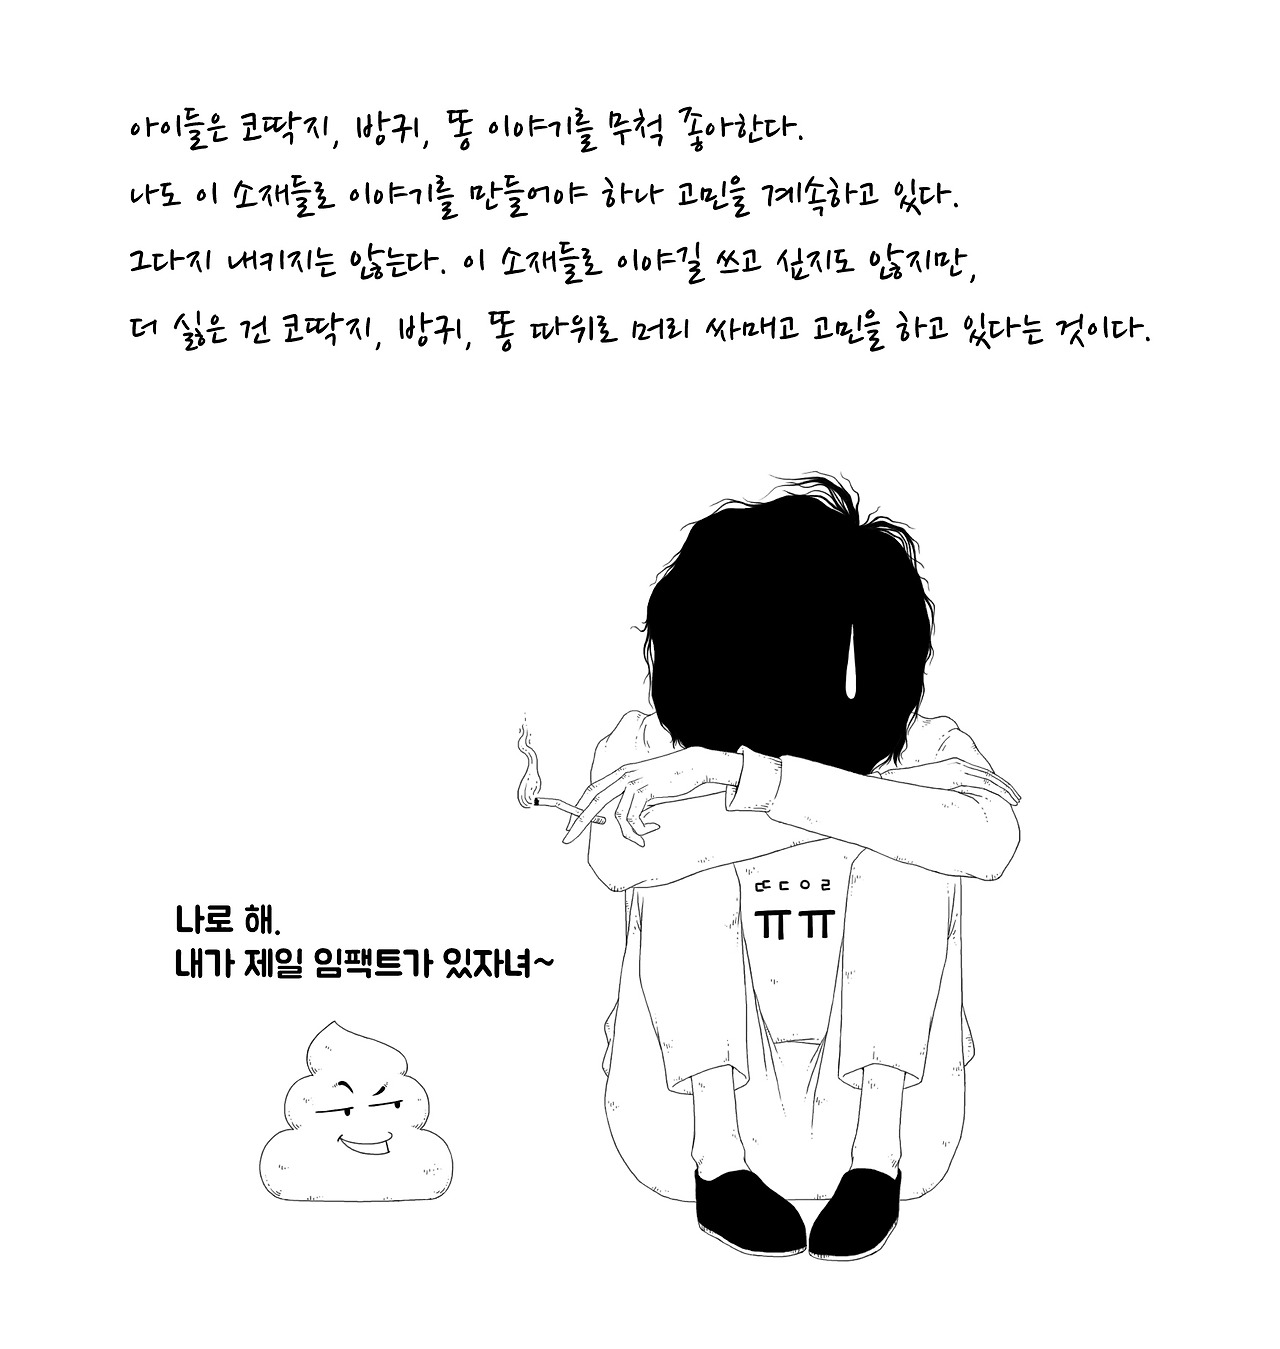 아이들은 코딱지, 방귀, 똥 이야기를 무척 좋아한다.
나도 이 소재들로 이야기를 만들어야 하나 고민을 계속하고 있다.
그다지 내키지는 않는다. 이 소재들로 이야길 쓰고 싶지도 않지만,
더 싫은 건 코딱지, 방귀, 똥 따위로 머리 싸매고 고민을 하고 있다는 것이다.
ㄸㄷㅇㄹ
ㅠㅠ
나로 해.
내가 제일 임팩트가 있자녀~